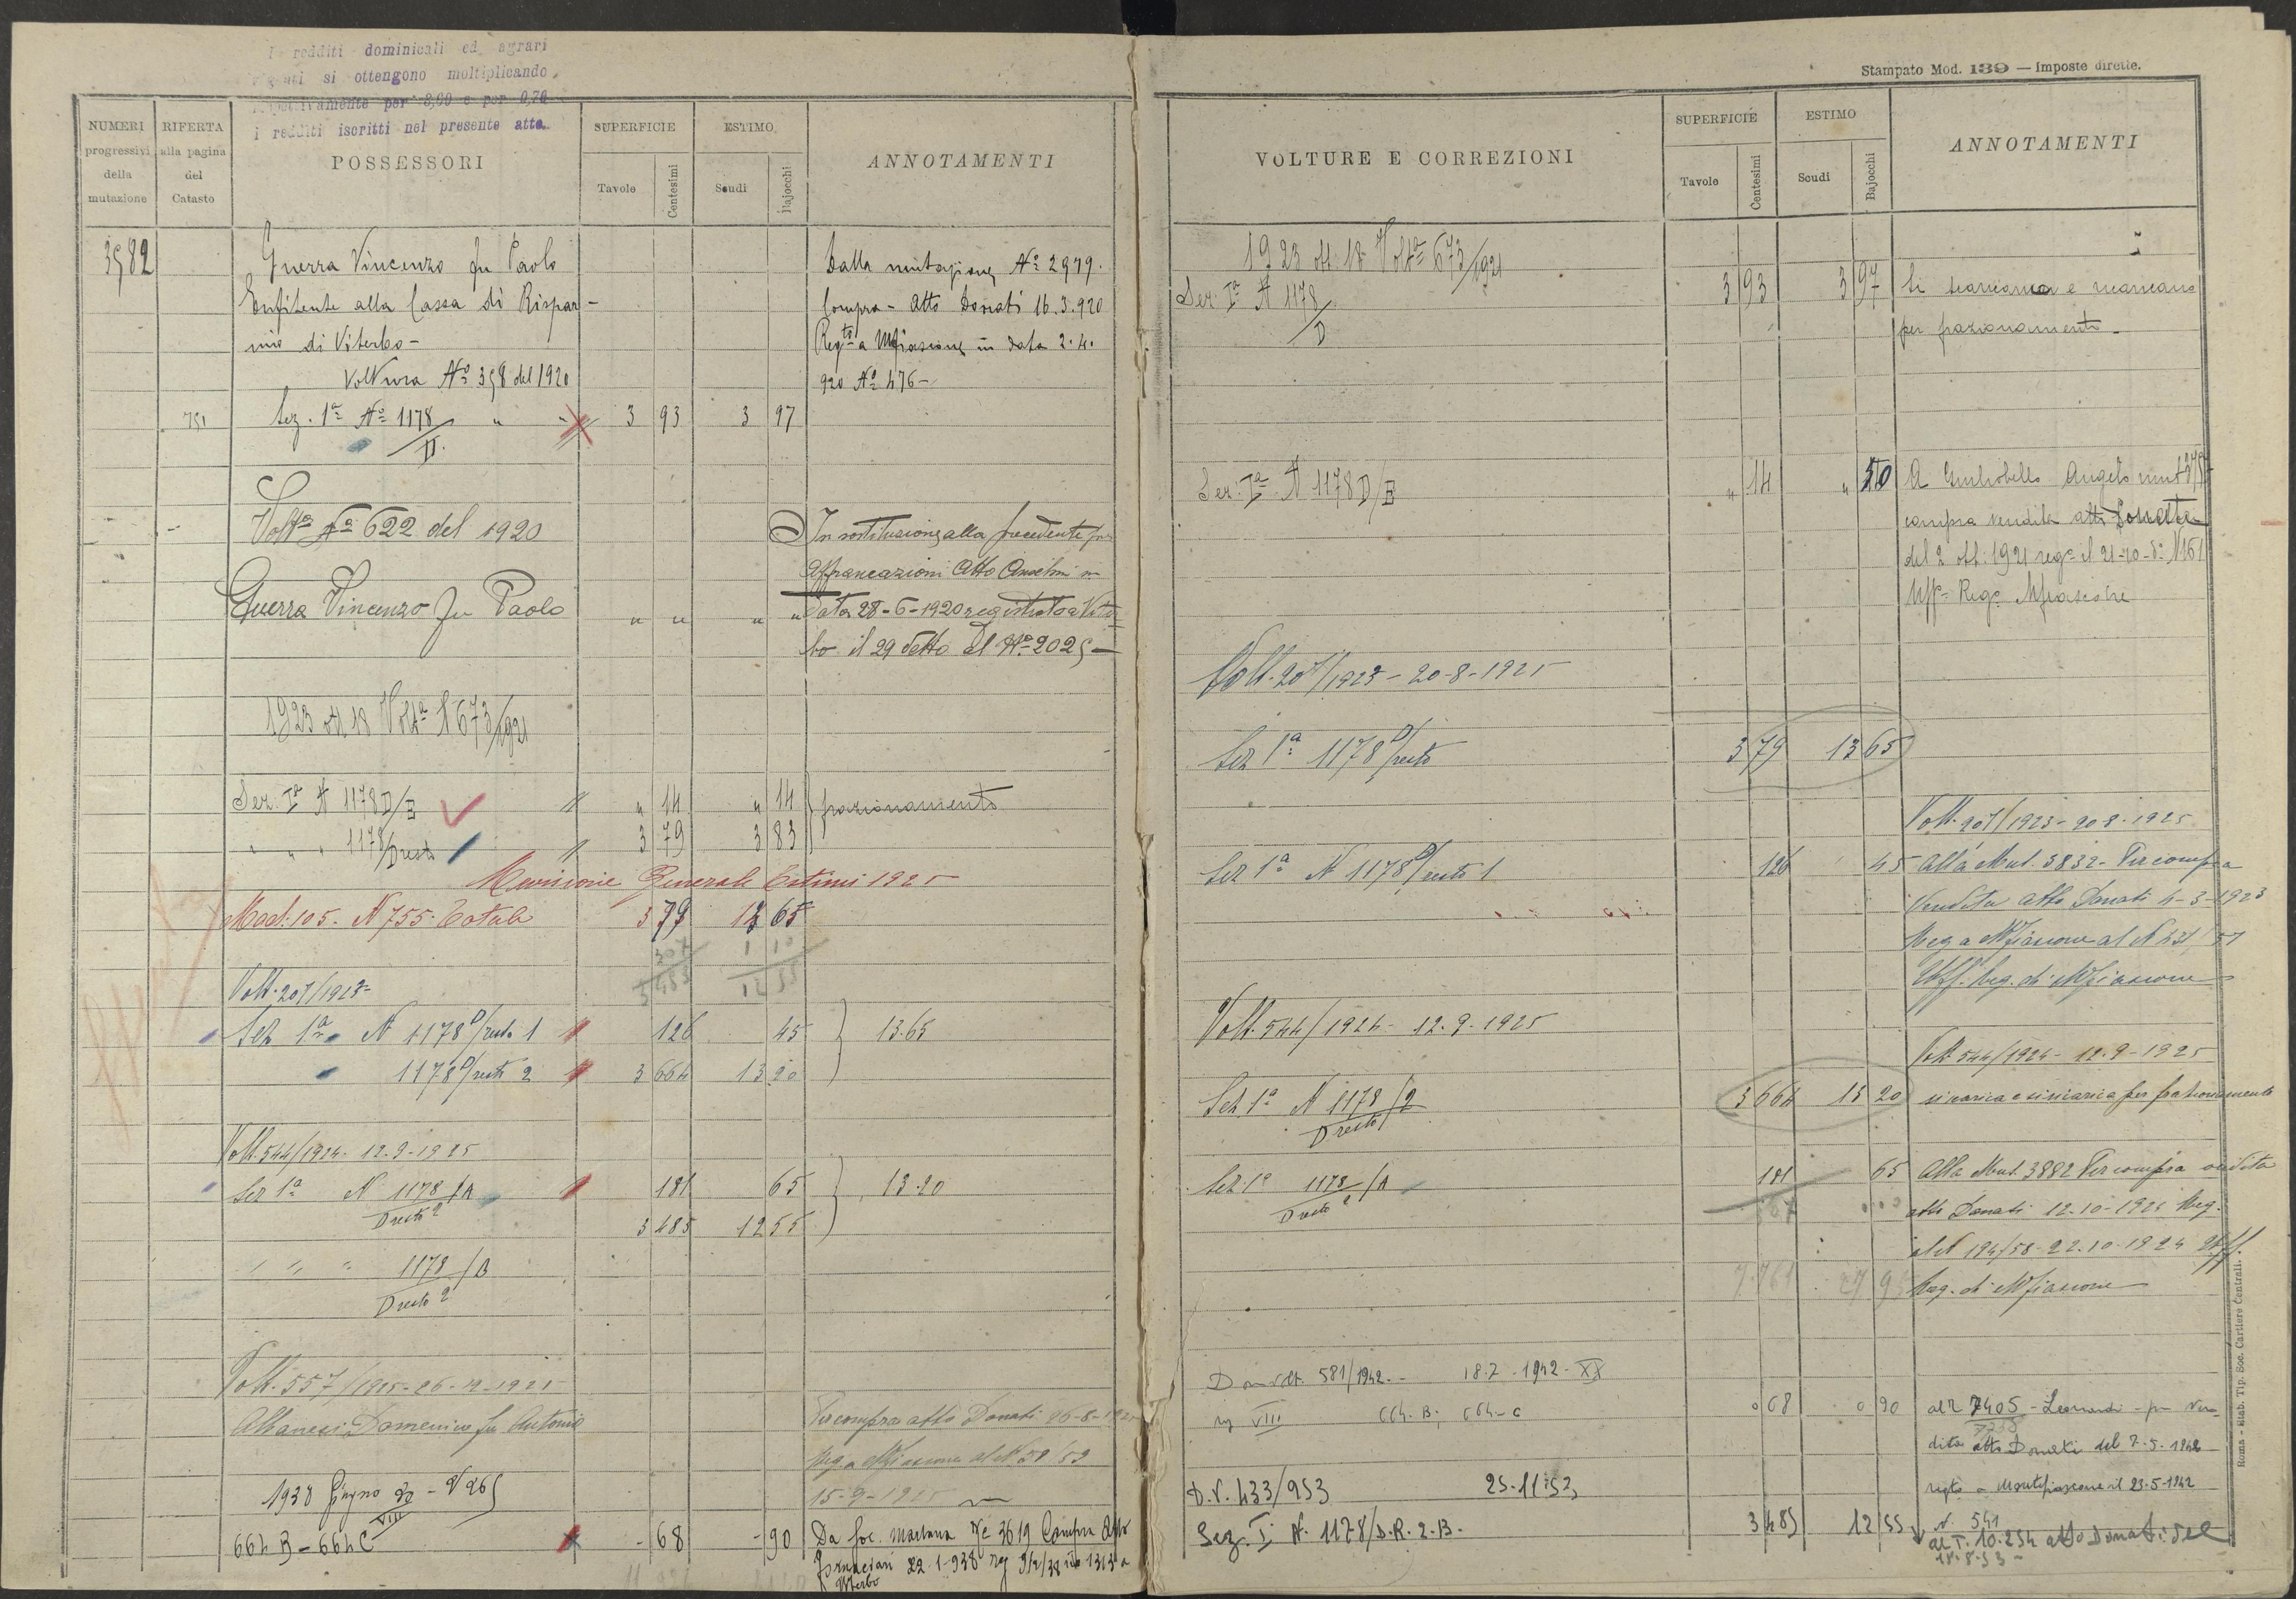 redditi dominicali ed agrari
si ottengono moltiplicando
per 8,00 e per 0,70
i redditi iscritti nel presente atto
NUMERI progressivi della mutazione
RIFERTA alla pagina del Catasto
POSSESSORI
SUPERFICIE
Tavole
Centesimi
ESTIMO
Scudi
Bajocchi
ANNOTAMENTI
3582
Guerra Vincenzo fu Paolo
Enfiteuta alla Cassa di Rispar-
mio di Viterbo-
Voltura Nº 358 del 1920
751 Sez. 1ª Nº 1178/D. " " 3 93 3 97
Dalla mutazione Nº 2979.
Compra - Atto Donati 16.3.920
Regto a Mfiascone in data 2.4.
920 Nº 476-
Volta Nº 622 del 1920
Guerra Vincenzo fu Paolo " " " "
In sostituzione alla precedente per
Affrancazioni Atto Anselmi in
Data 28-6-1920 registrato a Viter
bo il 29 detto al Nº 2025-
1923 ott 18 Volta N 673/1921
Sez. Iª N 1178 D/E " 14 " 14 frazionamento
" " " 1178/D resto 3 79 3 83
Revisione Generale Estimi 1925
Mod. 105. N 755. Totale 3 79 13 65
Volt. 207/1923-
Sez 1ª N 1178 D/resto 1 126 45 13.65
1178 D/resto 2 3 664 13 20
Volt. 544/1924- 12.9-1925
Sez 1ª N 1178/A D resto 2 181 65 13.20
3 485 12 55
" " " 1178/B D resto 2
Volt. 557/1925-26-12-1925
Albanesi Domenico fu Antonio
Per compra atto Donati 26-8-1925
Reg a Mfiascone al N. 58/59
15-9-1925
1938 Giugno 30 - V 265
664 B - 664 C - 68 - 90
Da Soc. Martana Mc 3619 Compra Atto
Fornaciari 22-1-938 reg 9/2/38 nº 1313 a
Viterbo
Stampato Mod. 139 — Imposte dirette.
VOLTURE E CORREZIONI
SUPERFICIE
Tavole
Centesimi
ESTIMO
Scudi
Bajocchi
ANNOTAMENTI
1923 ott. 18 Volta 673/1921
Sez. Iª N 1178/D 3 93 3 97 Si scaricano e ricaricano
per frazionamento-
Sez. Iª N 1178 D/E " 14 " 50 A Angelo
compra vendita atto Donati
del 2 ott. 1921 rego il 21-10-do N 161
Uffo Rego Mfiascone
Volt. 207/1923- 20-8-1925
Sez 1ª 1178 D/resto 3 79 13 65
Volt. 207/1923- 20.8.1925
Sez 1ª N 1178 D/resto 1 126 45 Alla Mut. 3832- Per compra
Vendita atto Donati 4-3-1923
Reg a Mfiascone al N
Uff. Reg. di Mfiascone
Volt. 544/1924- 12.9-1925
Volt 544/1924- 12.9-1925
Sez 1ª N 1178/2 D resto 3 664 13 20 si carica e si scarica per frazionamento
Sez 1ª 1178/A D resto 2 181 65 Alla Mut. 3882 Per compra vendita
atto Donati 12-10-1924 Reg.
al N 194/58-22.10-1924 Uff.
Reg. di Mfiascone
7.761
Dom. Volt. 581/1942.- 18.7.1942-XX
rig VIII 664-B; 664-C 0 68 0 90 al 7405 - Leonardi - per ven-
dita atto Donati del 7.5.1942
regto a Montefiascone il 23-5-1942
N. 541
D.V. 433/953 25.11.53
Sez. I N. 1178/D.R.2.B. 3 485 12 55 al T. 10.254 atto Donati del
18.8.53-
Roma - Stab. Tip. Soc. Cartiere Centrali.